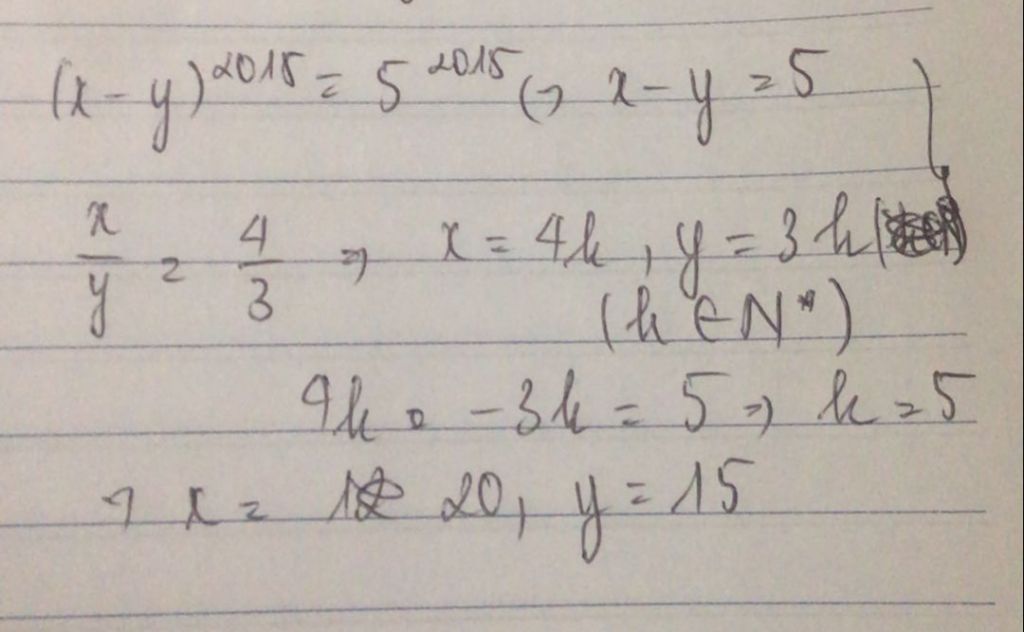 (x-y)^2015 = 5^2015 (=) x-y = 5
x/y = 4/3 => x = 4k, y = 3k
(k ∈ N*)
4k - 3k = 5 => k = 5
=> x = 20, y = 15